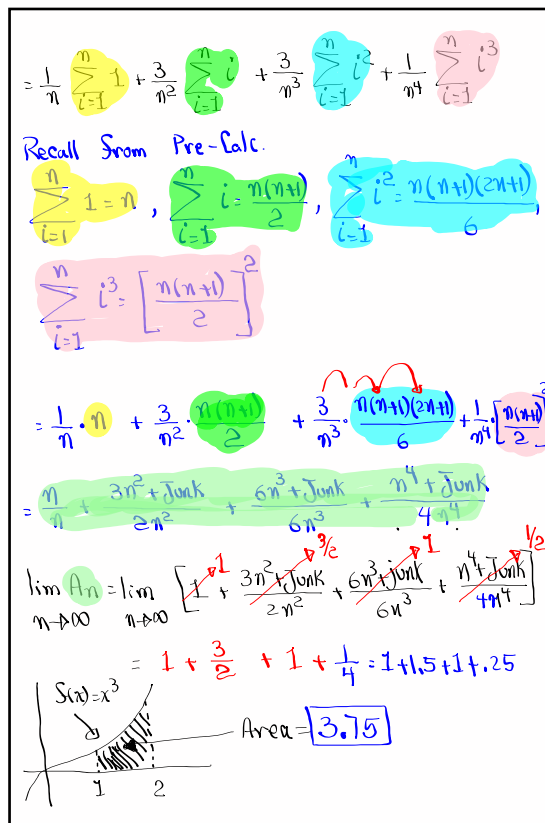 = 1/n ∑_{i=1}^{n} 1 + 3/n² ∑_{i=1}^{n} i + 3/n³ ∑_{i=1}^{n} i² + 1/n⁴ ∑_{i=1}^{n} i³
Recall from Pre-Calc.
∑_{i=1}^{n} 1 = n , ∑_{i=1}^{n} i = n(n+1)/2 , ∑_{i=1}^{n} i² = n(n+1)(2n+1)/6 ,
∑_{i=1}^{n} i³ = [n(n+1)/2]²
= 1/n · n + 3/n² · n(n+1)/2 + 3/n³ · n(n+1)(2n+1)/6 + 1/n⁴ · [n(n+1)/2]²
= n/n + 3n²+Junk/2n² + 6n³+Junk/6n³ + n⁴+Junk/4n⁴
1 3/2 1 1/2
lim_{n→∞} An = lim_{n→∞} [1 + 3n²+Junk/2n² + 6n³+junk/6n³ + n⁴+Junk/4n⁴]
= 1 + 3/2 + 1 + 1/4 = 1+1.5+1+.25
S(x)=x³
Area = 3.75
1 2